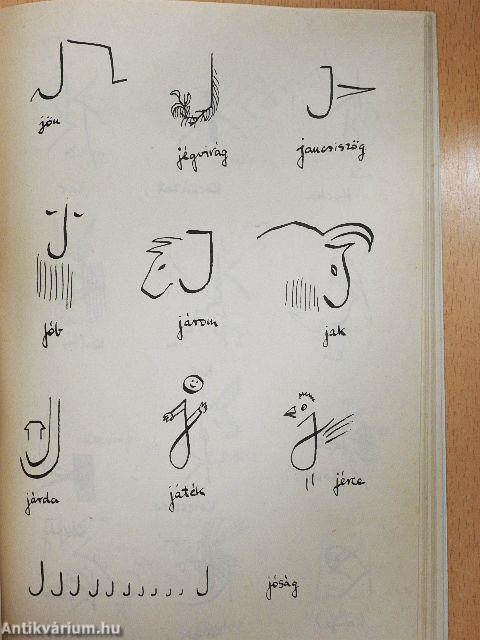 jön
jégvirág
jancsiszög
jób
járom
jak
járda
játék
jérce
J J J J J J J J J J J
jóság
Antikvárium.hu